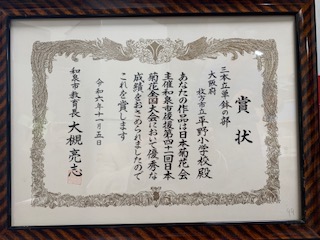 賞状
三本立単鉢の部
大阪府
枚方市立平野小学校殿
あなたの作品は日本菊花会
主催和泉市後援第四十一回日本
菊花全国大会において優秀な
成績をおさめられましたので
これを賞します
令和六年十一月五日
和泉市教育長 大槻亮志